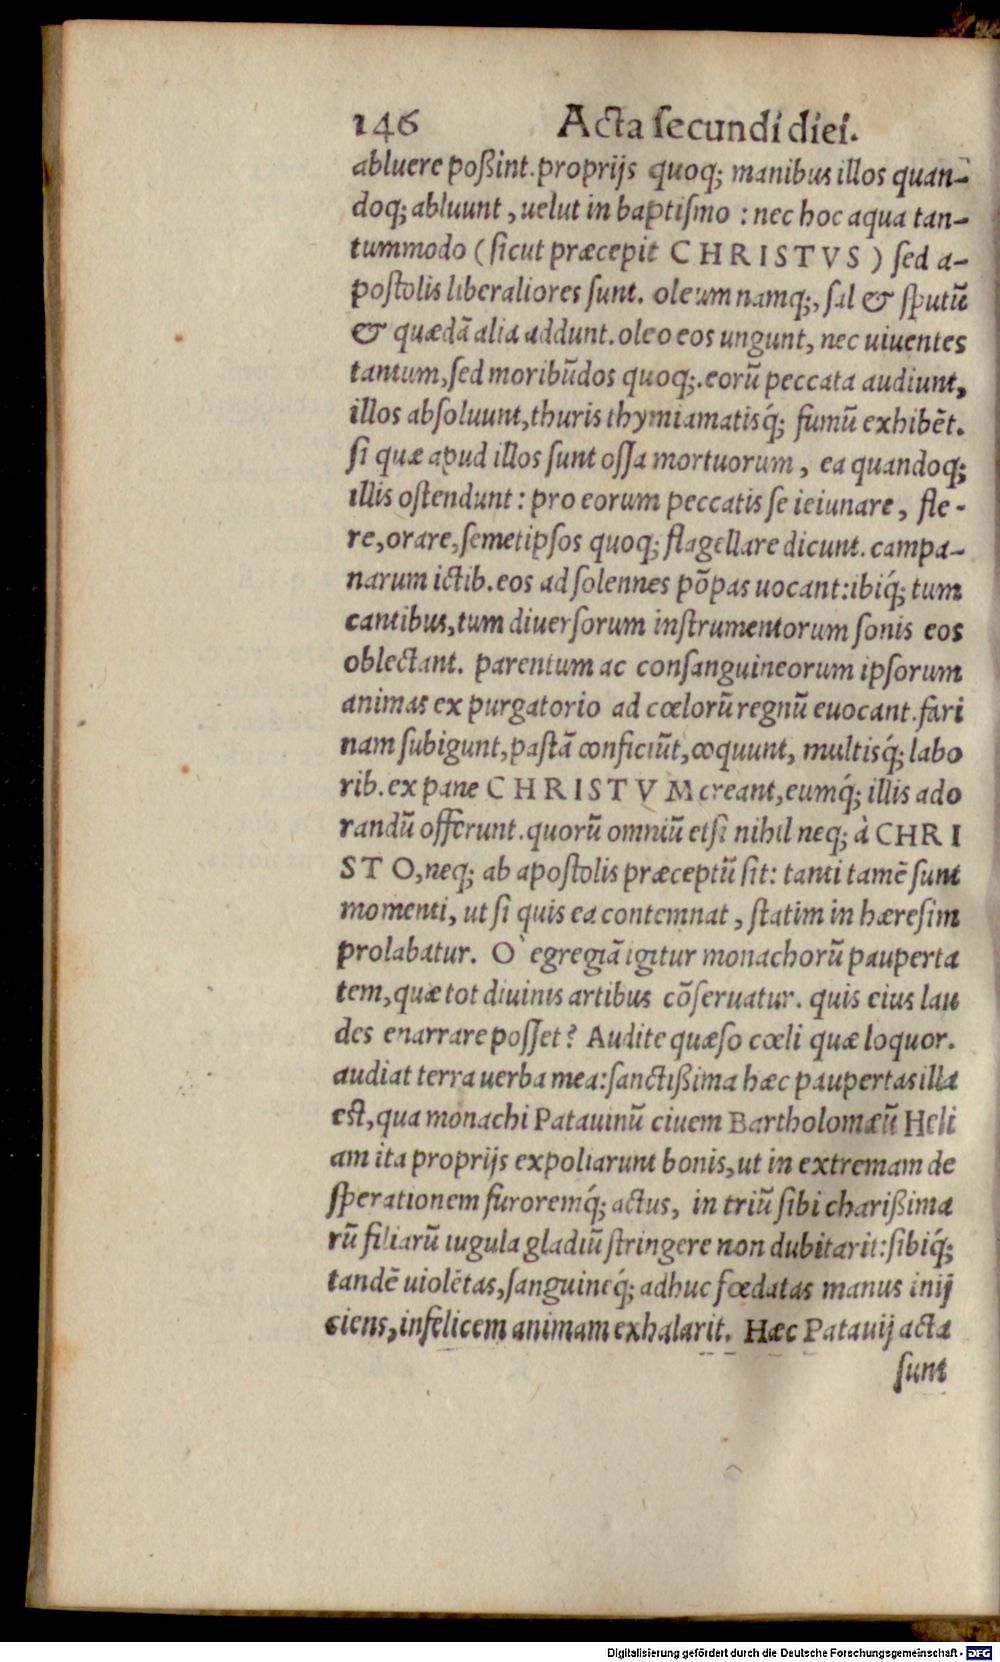 146 Acta ſecundi diei.
abluere poßint. proprijs quoq; manibus illos quan-
doq; abluunt, uelut in baptiſmo : nec hoc aqua tan-
tummodo ( ſicut præcepit CHRISTVS ) ſed a-
poſtolis liberaliores ſunt. oleum namq;, ſal & ſputū
& quædā alia addunt. oleo eos ungunt, nec uiuentes
tantum, ſed moribūdos quoq;. eorū peccata audiunt,
illos abſoluunt, thuris thymiamatisq́; fumū exhibēt.
ſi quæ apud illos ſunt oſſa mortuorum, ea quandoq;
illis oſtendunt : pro eorum peccatis ſe ieiunare, fle-
re, orare, ſemetipſos quoq; flagellare dicunt. campa-
narum ictib. eos ad ſolennes pōpas uocant: ibiq́; tum
cantibus, tum diuerſorum inſtrumentorum ſonis eos
oblectant. parentum ac conſanguineorum ipſorum
animas ex purgatorio ad cœlorū regnū euocant. fari
nam ſubigunt, paſtā conficiūt, coquunt, multisq́; labo
rib. ex pane CHRISTVM creant, eumq́; illis ado
randū offerunt. quorū omniū etſi nihil neq; à CHRI
STO, neq; ab apoſtolis præceptū ſit: tanti tamē ſunt
momenti, ut ſi quis ea contemnat, ſtatim in hæreſim
prolabatur. O` egregiā igitur monachorū pauperta
tem, quæ tot diuinis artibus cōſeruatur. quis eius lau
des enarrare poſſet? Audite quæſo cœli quæ loquor.
audiat terra uerba mea: ſanctißima hæc paupertas illa
eſt, qua monachi Patauinū ciuem Bartholomæū Heli
am ita proprijs expoliarunt bonis, ut in extremam de
ſperationem furoremq́; actus, in triū ſibi charißima
rū filiarū iugula gladiū ſtringere non dubitarit: ſibiq́;
tandē uiolētas, ſanguineq́; adhuc fœdatas manus inij
ciens, infelicem animam exhalarit. Hæc Patauij acta
ſunt
Digitalisierung gefördert durch die Deutsche Forschungsgemeinschaft - DFG